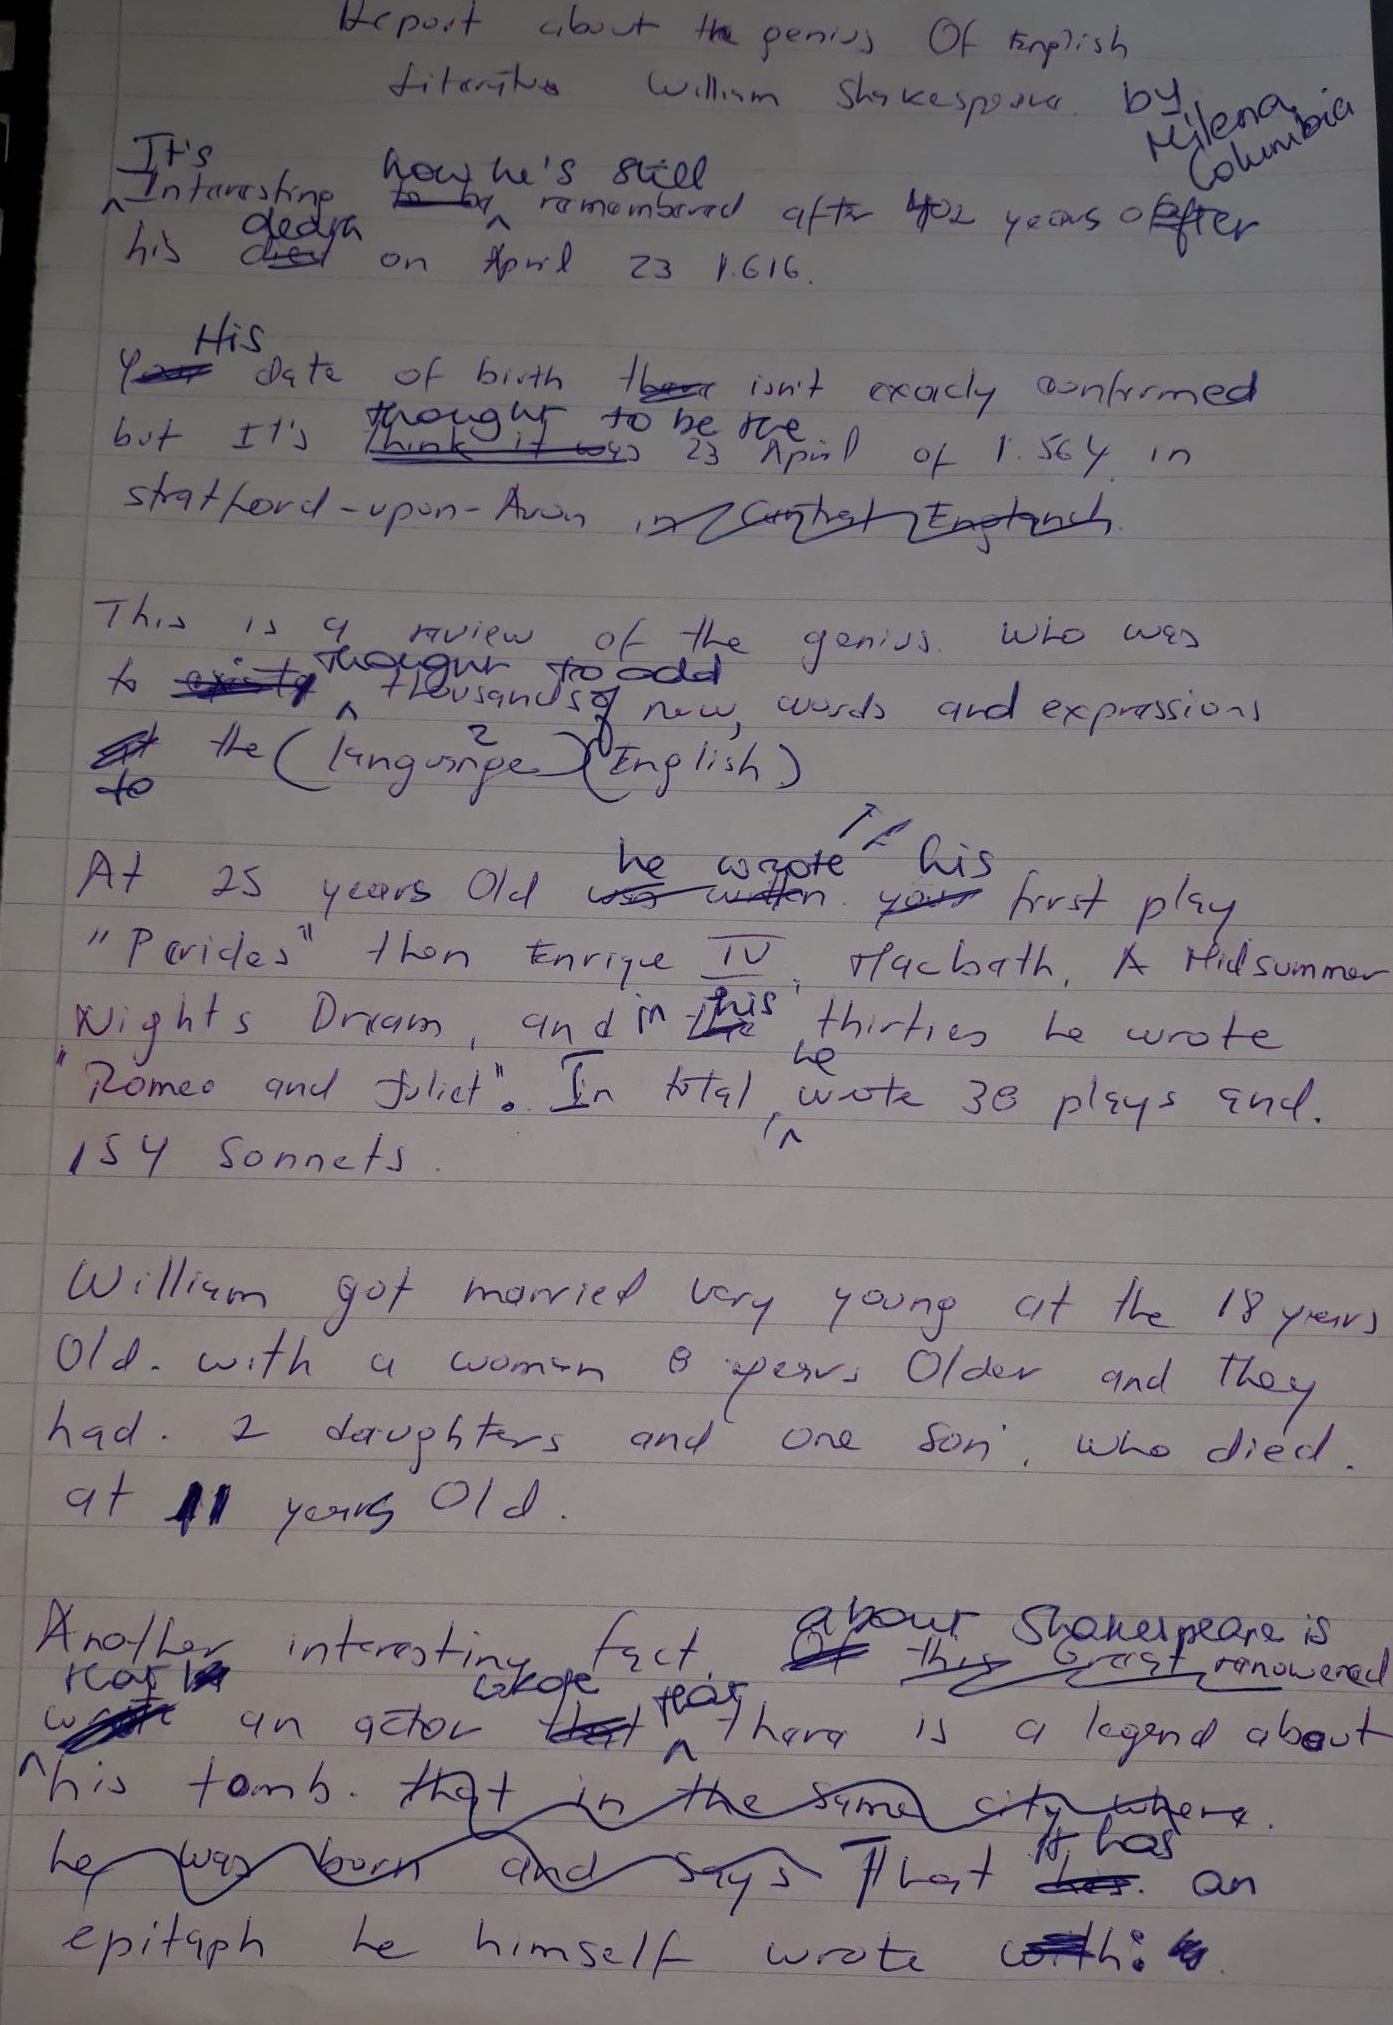 Report about the genius Of English
Literature William Shakespeare. by
Milena
Columbia
It's how he's still
Interesting to be remembered after 402 years after
death
his died on April 23 1.616.
His
Your date of birth there isn't exacly confirmed
thought to be the
but It's think it was 23 April of 1.564 in
stratford-upon-Avon in Central England.
This is a review of the genius. who was
thought to add
to thousands of new, words and expressions
at the (language) (English)
2
to
he wrote his
At 25 years Old was written your first play
"Pericles" then Enrique IV, Macbath, A Midsummer
his
Nights Dream, and in the thirties he wrote
he
"Romeo and Juliet". In total, wrote 38 plays and.
154 Sonnets.
William got married very young at the 18 years
Old. with a woman 8 years Older and they
had. 2 daughters and one son, who died.
at 11 years Old.
about Shakespeare is
Another interesting fact. Of this Great renowered
that
wrote an actor that there is a legend about
that
his tomb. that in the same city where.
it has
he was born and says That has. an
epitaph he himself wrote with: